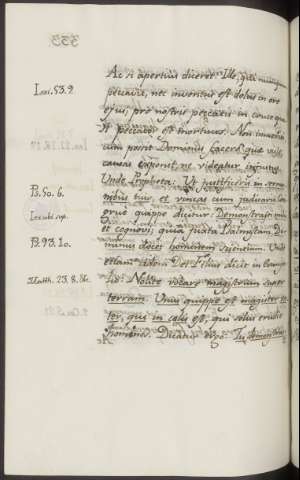 333
Ac si apertius diceret: Ille, qui nunquam
Isai. 53. 9.
peccavit, nec inventus est dolus in ore
ejus, pro nostris peccatis in cruce qua-
si peccator est mortuus. Non
cum possit Dominus facere quae vult,
causas exponit, ne videatur injustus.
Unde Propheta: Ut justificeris in sermo-
Ps. 50. 6.
nibus tuis, et vincas cum judicaris.
quippe dicitur: Demonstrasti mihi,
et cognovi; quia juxta Psalmistam Do-
Ps. 93. 10.
minus docet hominem scientiam. Unde
etiam idem Dei Filius dicit in Evange-
Matth. 23. 8.
lio: Nolite vocare magistrum super
terram. Unus quippe est magister ves-
ter, qui in cælis est, qui solus erudit
homines. Dicatur ergo: Tu demonstrasti